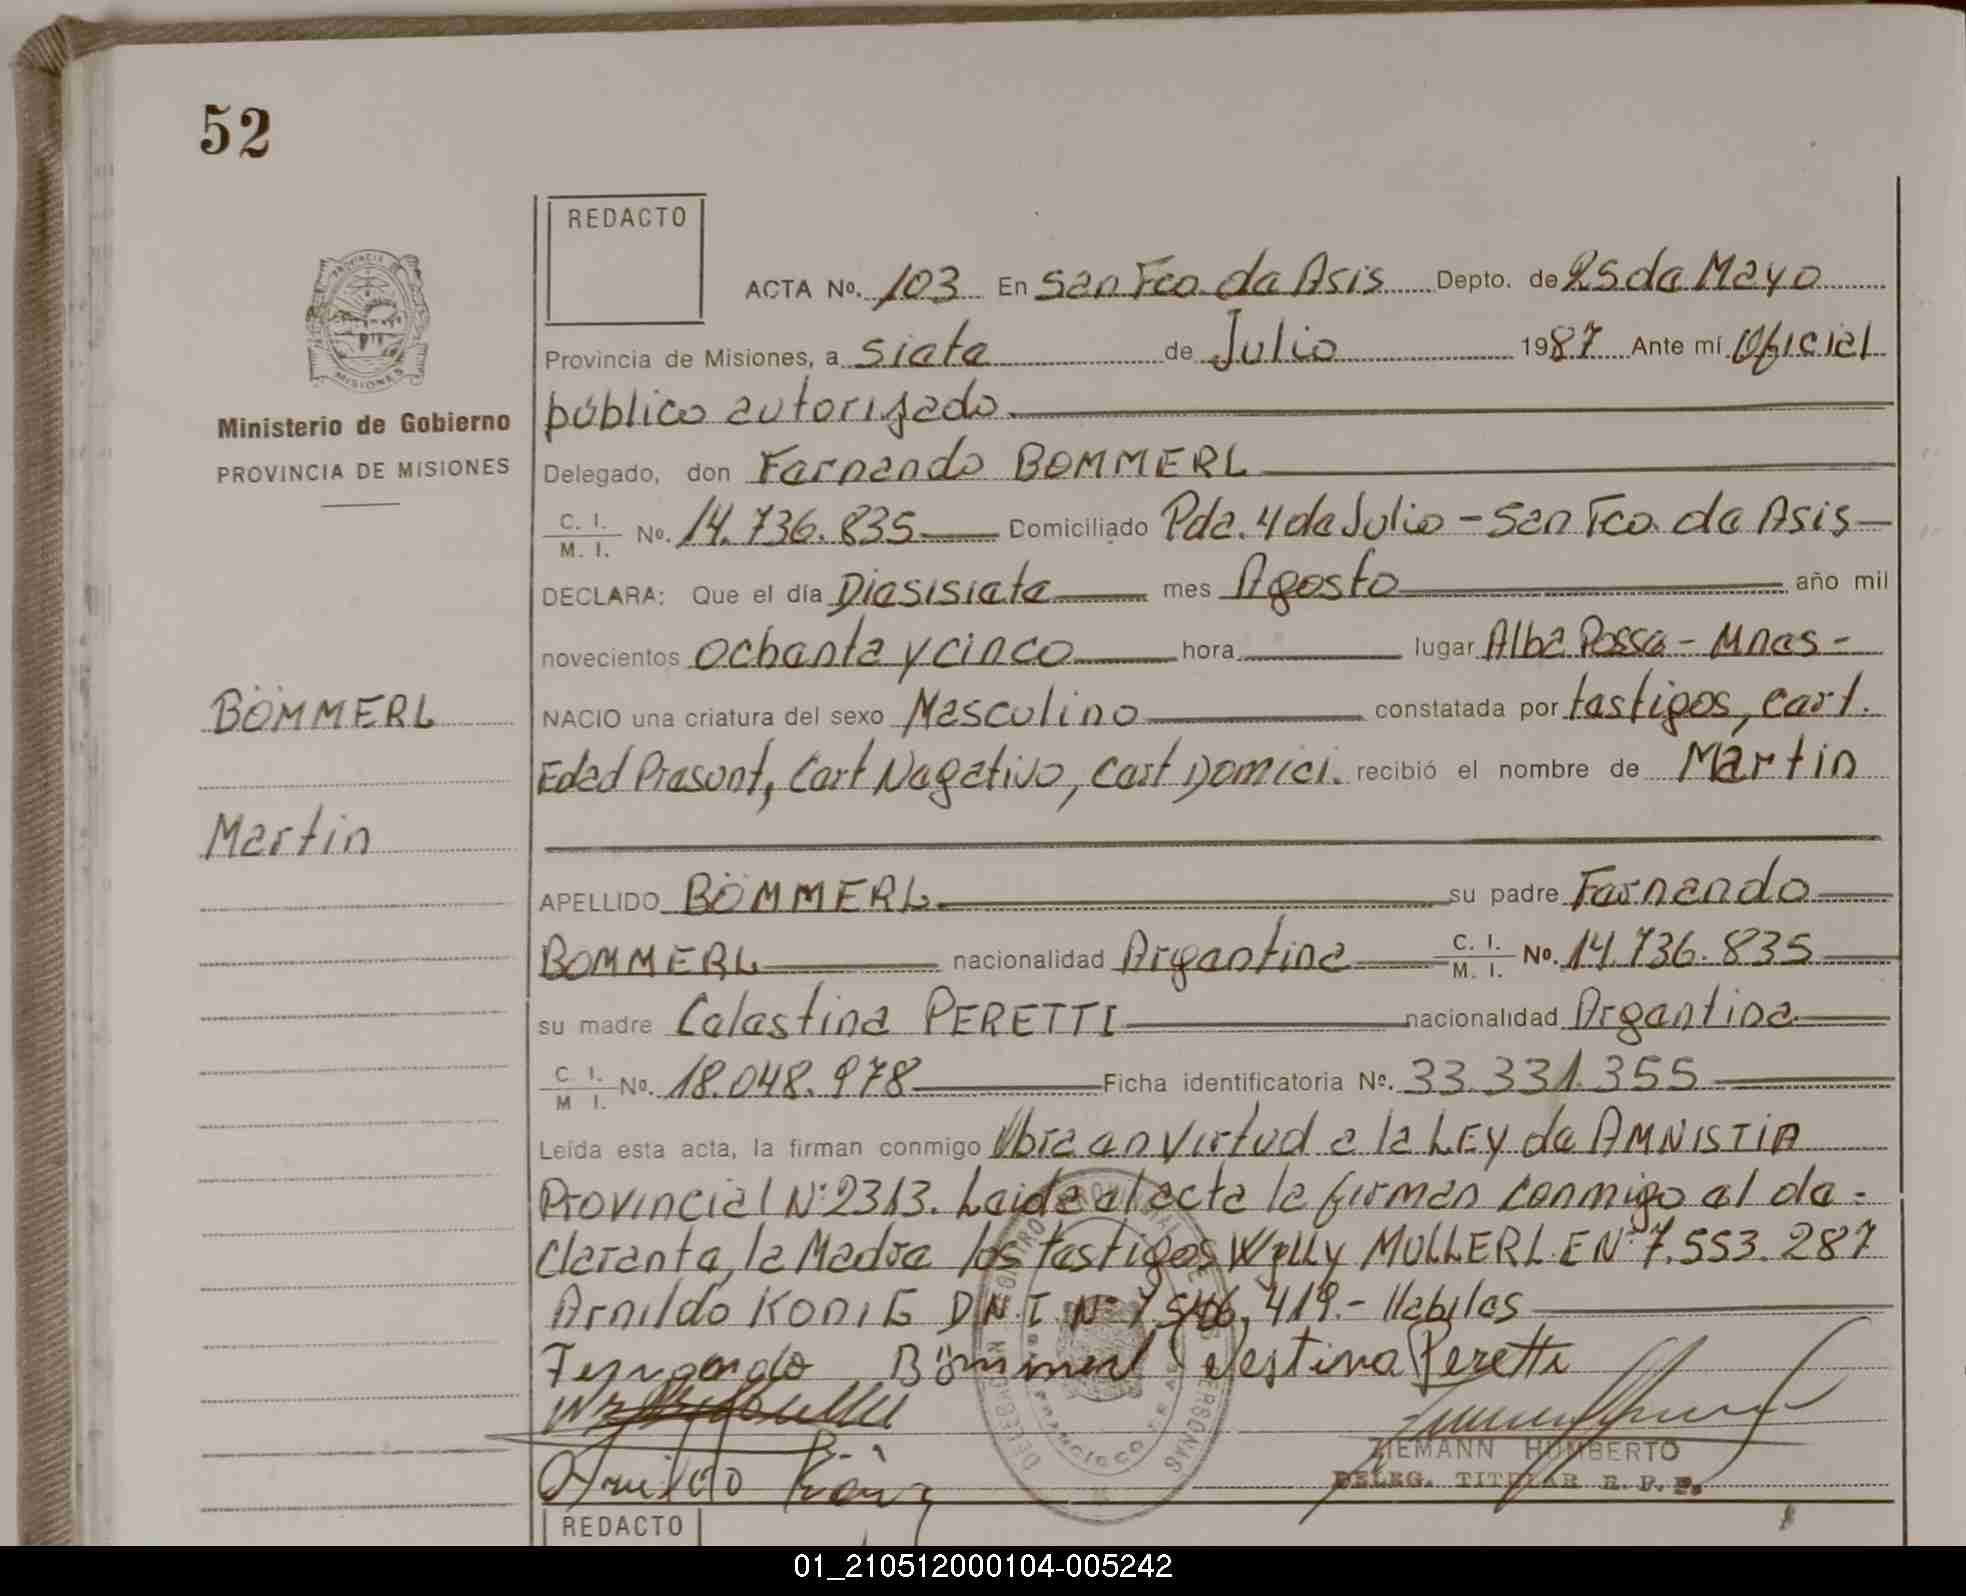 52
REDACTO
ACTA No. 103 En San Fco. de Asis Depto. de 25 de Mayo
Provincia de Misiones, a siete de Julio 1987 Ante mí Oficial
público autorizado
Ministerio de Gobierno
PROVINCIA DE MISIONES
Delegado, don Fernando BOMMERL
C. I. / M. I. No. 14.736.835 Domiciliado Pda. 4 de Julio - San Fco. de Asis
DECLARA: Que el día Diesisiete mes Agosto año mil
novecientos ochenta y cinco hora lugar Alba Posse - Mnes -
BÖMMERL
NACIO una criatura del sexo Masculino constatada por testigos, cert.
Edad Presunt, Cert Negativo, cert Domici. recibió el nombre de Martin
Martin
APELLIDO BÖMMERL su padre Fernando
BOMMERL nacionalidad Argentina C. I. / M. I. No. 14.736.835
su madre Celestina PERETTI nacionalidad Argentina
C I. / M I. No. 18.048.978 Ficha identificatoria No. 33.331.355
Leída esta acta, la firman conmigo Obra en virtud a la LEY de AMNISTIA
Provincial N° 2313. Leida el acta la firman conmigo el de-
clarante, la Madre los testigos Willy MULLER L.E N° 7.553.287
Arnildo KONIG D.N.I. N° 419.- Habiles
Fernando Bömmerl Celestina Peretti
Arnildo König
ZIEMANN HUMBERTO
DELEG. TITULAR R. P. P.
REDACTO
01_210512000104-005242